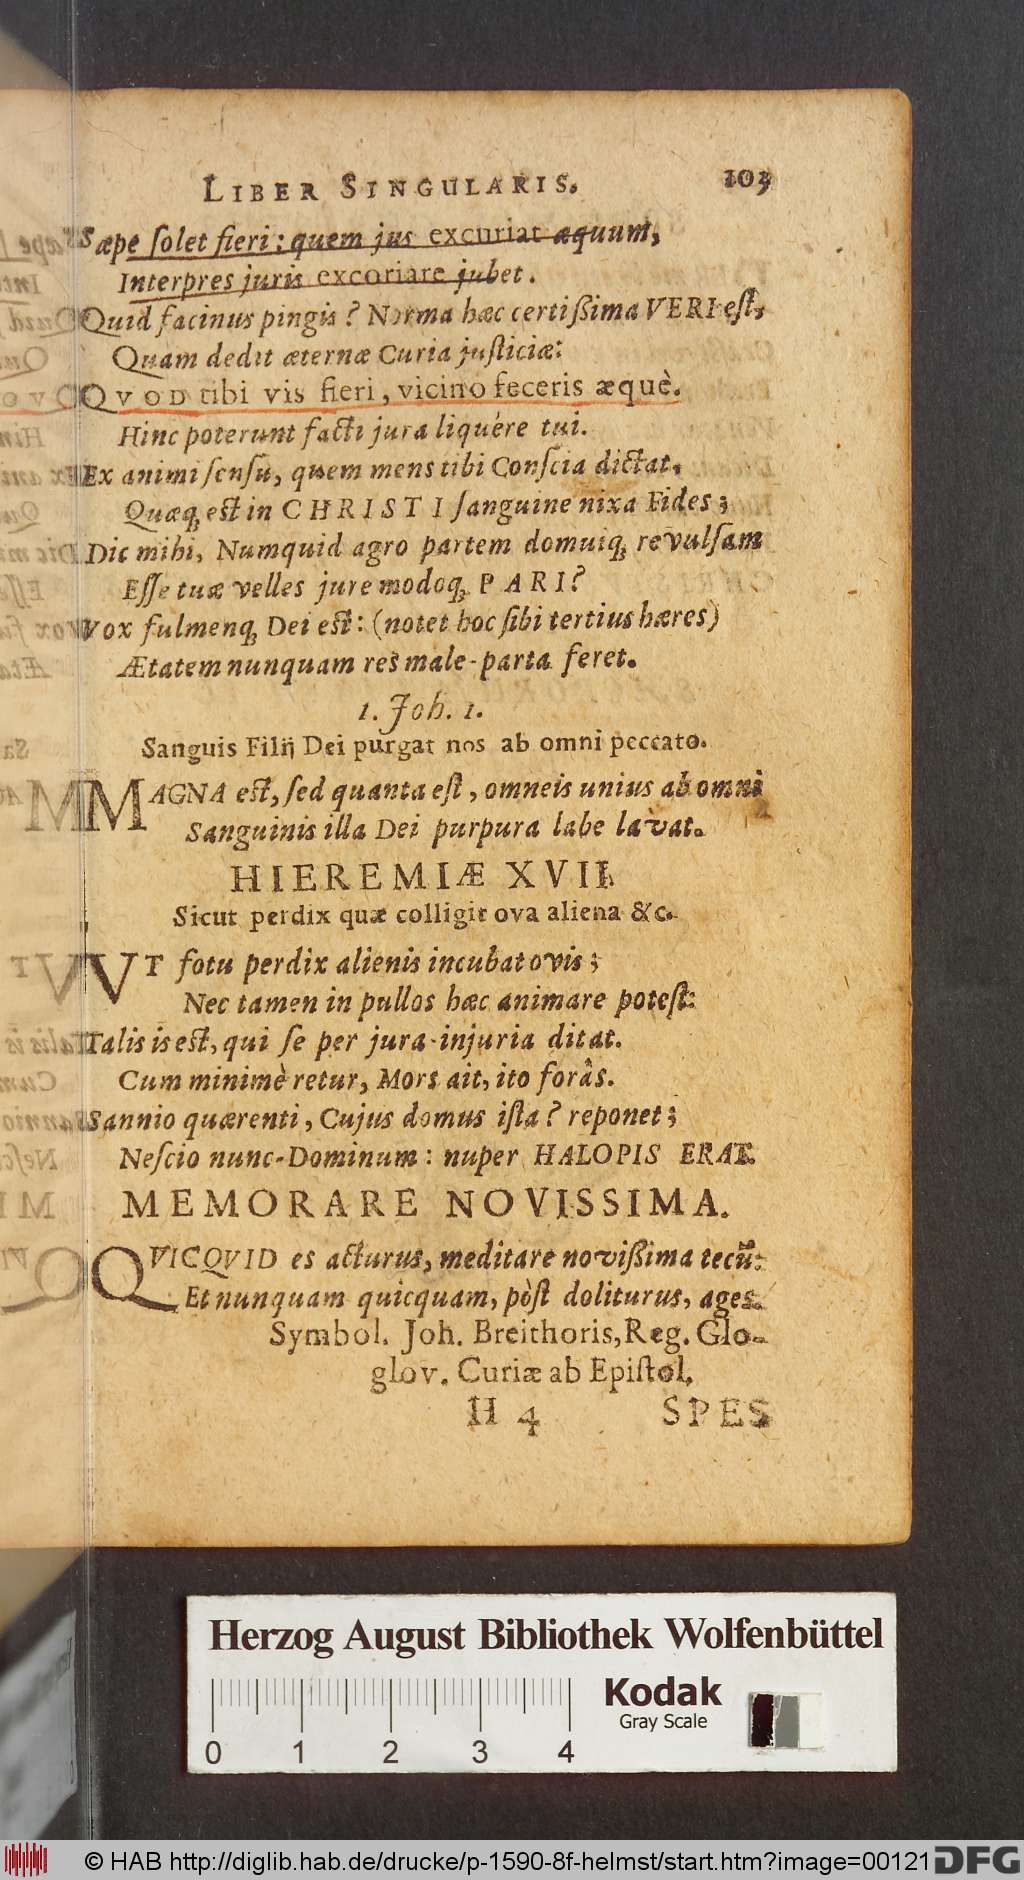 LIBER SINGULARIS. 103
Sæpe ſolet fieri: quem jus excuriat æquum,
Interpres juris excoriare jubet.
Quid facinus pingis? Norma hæc certißima VERI eſt,
Quam dedit æternæ Curia juſticiæ:
QVOD tibi vis fieri, vicino feceris æquè.
Hinc poterunt facti jura liquére tui.
Ex animi ſenſu, quem mens tibi Conſcia dictat,
Quæq; est in CHRISTI ſanguine nixa Fides;
Dic mihi, Numquid agro partem domuiq; revulſam
Eſſe tuæ velles jure modoq; PARI?
Vox fulmenq; Dei est: (notet hoc ſibi tertius hæres)
Ætatem nunquam res male-parta feret.
1. Joh. 1.
Sanguis Filij Dei purgat nos ab omni peccato.
MAGNA est, ſed quanta eſt, omneis unius ab omni
Sanguinis illa Dei purpura labe lavat.
HIEREMIÆ XVII.
Sicut perdix quæ colligit ova aliena &c.
VT fotu perdix alienis incubat ovis;
Nec tamen in pullos hæc animare poteſt:
Talis is est, qui ſe per jura-injuria ditat.
Cum minimè retur, Mors ait, ito forâs.
Sannio quærenti, Cujus domus iſta? reponet;
Neſcio nunc-Dominum: nuper HALOPIS ERAT.
MEMORARE NOVISSIMA.
QVICQVID es acturus, meditare novißima tecū:
Et nunquam quicquam, pòſt doliturus, ages.
Symbol. Joh. Breithoris, Reg. Glo-
glov. Curiæ ab Epiſtol.
H 4 SPES
Herzog August Bibliothek Wolfenbüttel
Kodak
Gray Scale
0 1 2 3 4
© HAB http://diglib.hab.de/drucke/p-1590-8f-helmst/start.htm?image=00121 DFG